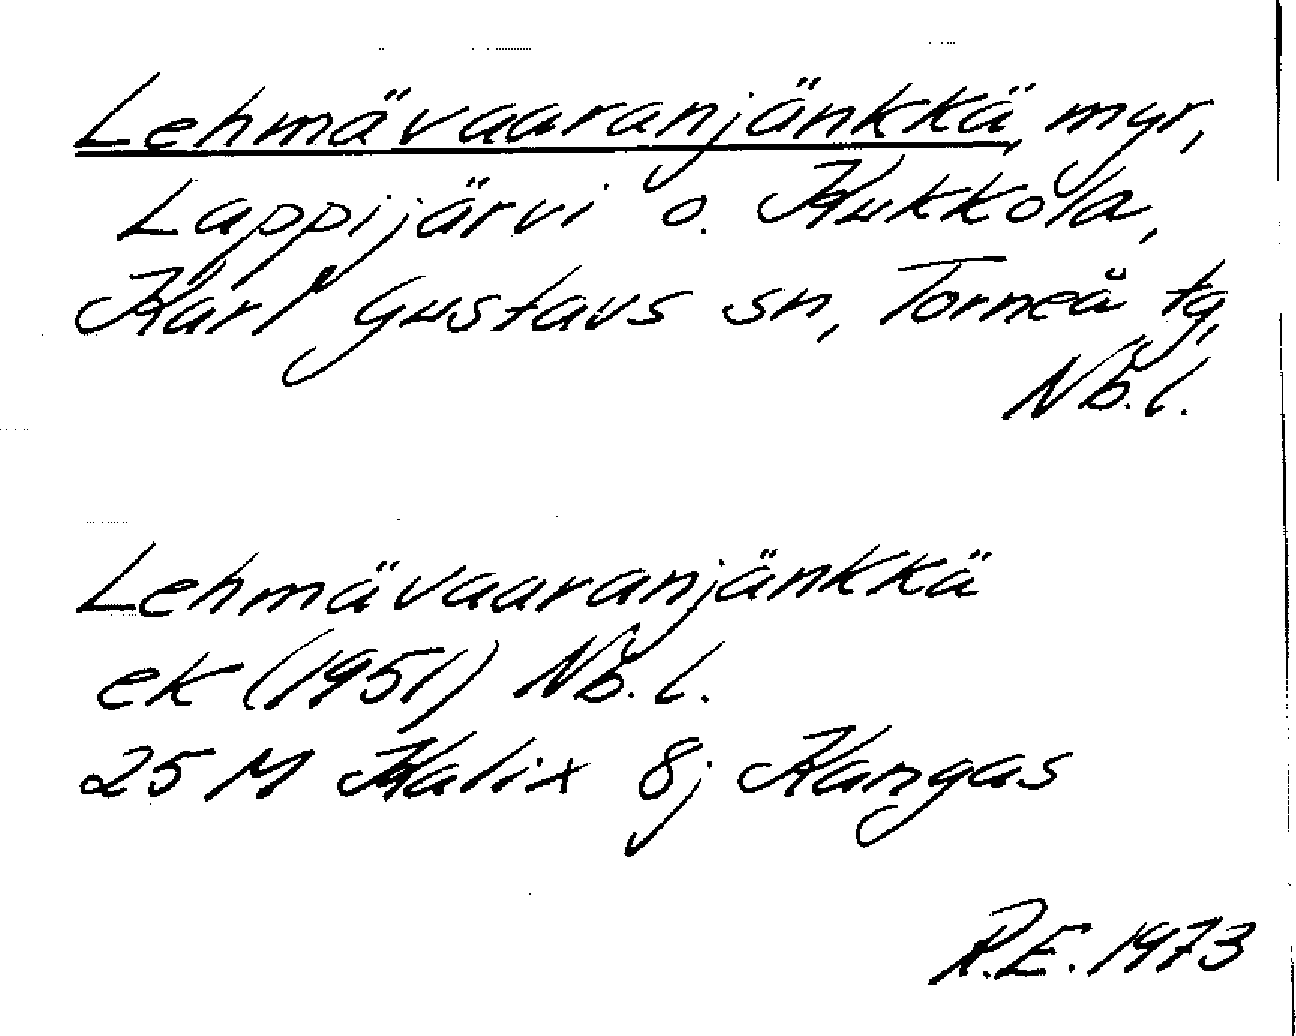 Lehmävaaranjänkkä, myr,
Lappijärvi o. Kukkola,
Karl Gustavs sn, Torneå tg,
Nb.l.
Lehmävaaranjänkkä
ek (1951) Nb.l.
25 M Kalix 8j Kangas
R.E. 1973